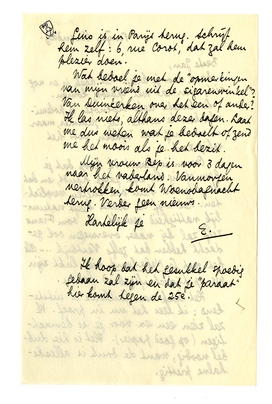 Gins is in Parijs terug. Schrijf
hem zelf: 6, rue Corot, dat zal hem
plezier doen.
Wat bedoel je met de "opmerkingen
van mijn vriend uit de sigarenwinkel"?
Van Duinkerken over het een of ander?
Ik las niets, althans deze dagen. Laat
me dus weten wat je bedoelt of zend
me het moois als je het bezit.
Mijn vrouw Bep is voor 3 dagen
naar het vaderland. Vanmorgen
vertrokken, komt Woensdagnacht
terug. Verder geen nieuws.
Hartelijk je
E.
Ik hoop dat het gesukkel spoedig
gedaan zal zijn en dat je "paraat"
hier komt tegen de 25e.